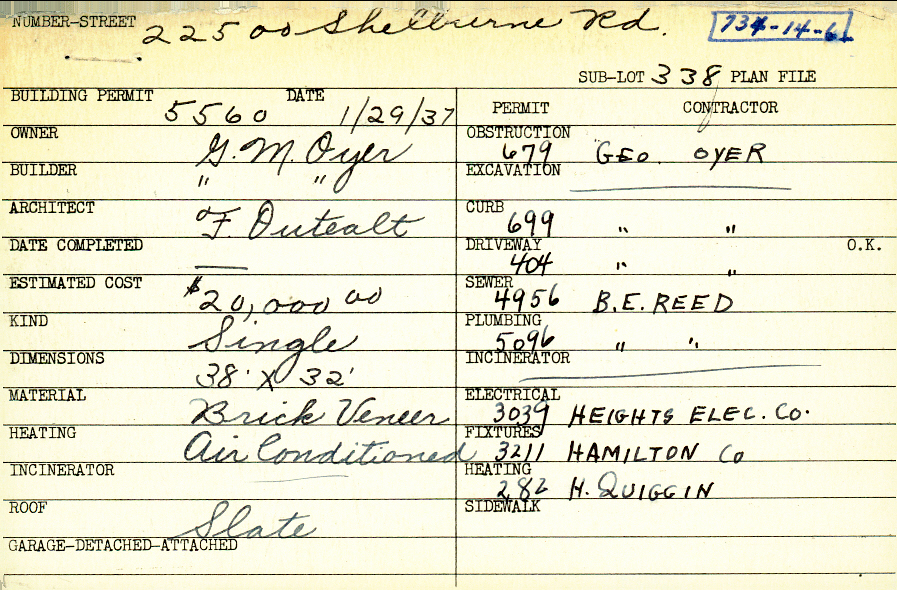 NUMBER-STREET 22500 Shelburne Rd. 734-14-6
SUB-LOT 338 PLAN FILE
BUILDING PERMIT 5560 DATE 1/29/37
OWNER G. M. Oyer
BUILDER " "
ARCHITECT F Outcalt
DATE COMPLETED —
ESTIMATED COST $20,000 00
KIND Single
DIMENSIONS 38' X 32'
MATERIAL Brick Veneer
HEATING Air Conditioned
INCINERATOR
ROOF Slate
GARAGE-DETACHED-ATTACHED
PERMIT CONTRACTOR
OBSTRUCTION 679 GEO. OYER
EXCAVATION
CURB 699 " "
DRIVEWAY 404 " " O.K.
SEWER 4956 B.E. REED
PLUMBING 5096 " "
INCINERATOR
ELECTRICAL 3039 HEIGHTS ELEC. CO.
FIXTURES 3211 HAMILTON CO
HEATING 282 H. QUIGGIN
SIDEWALK